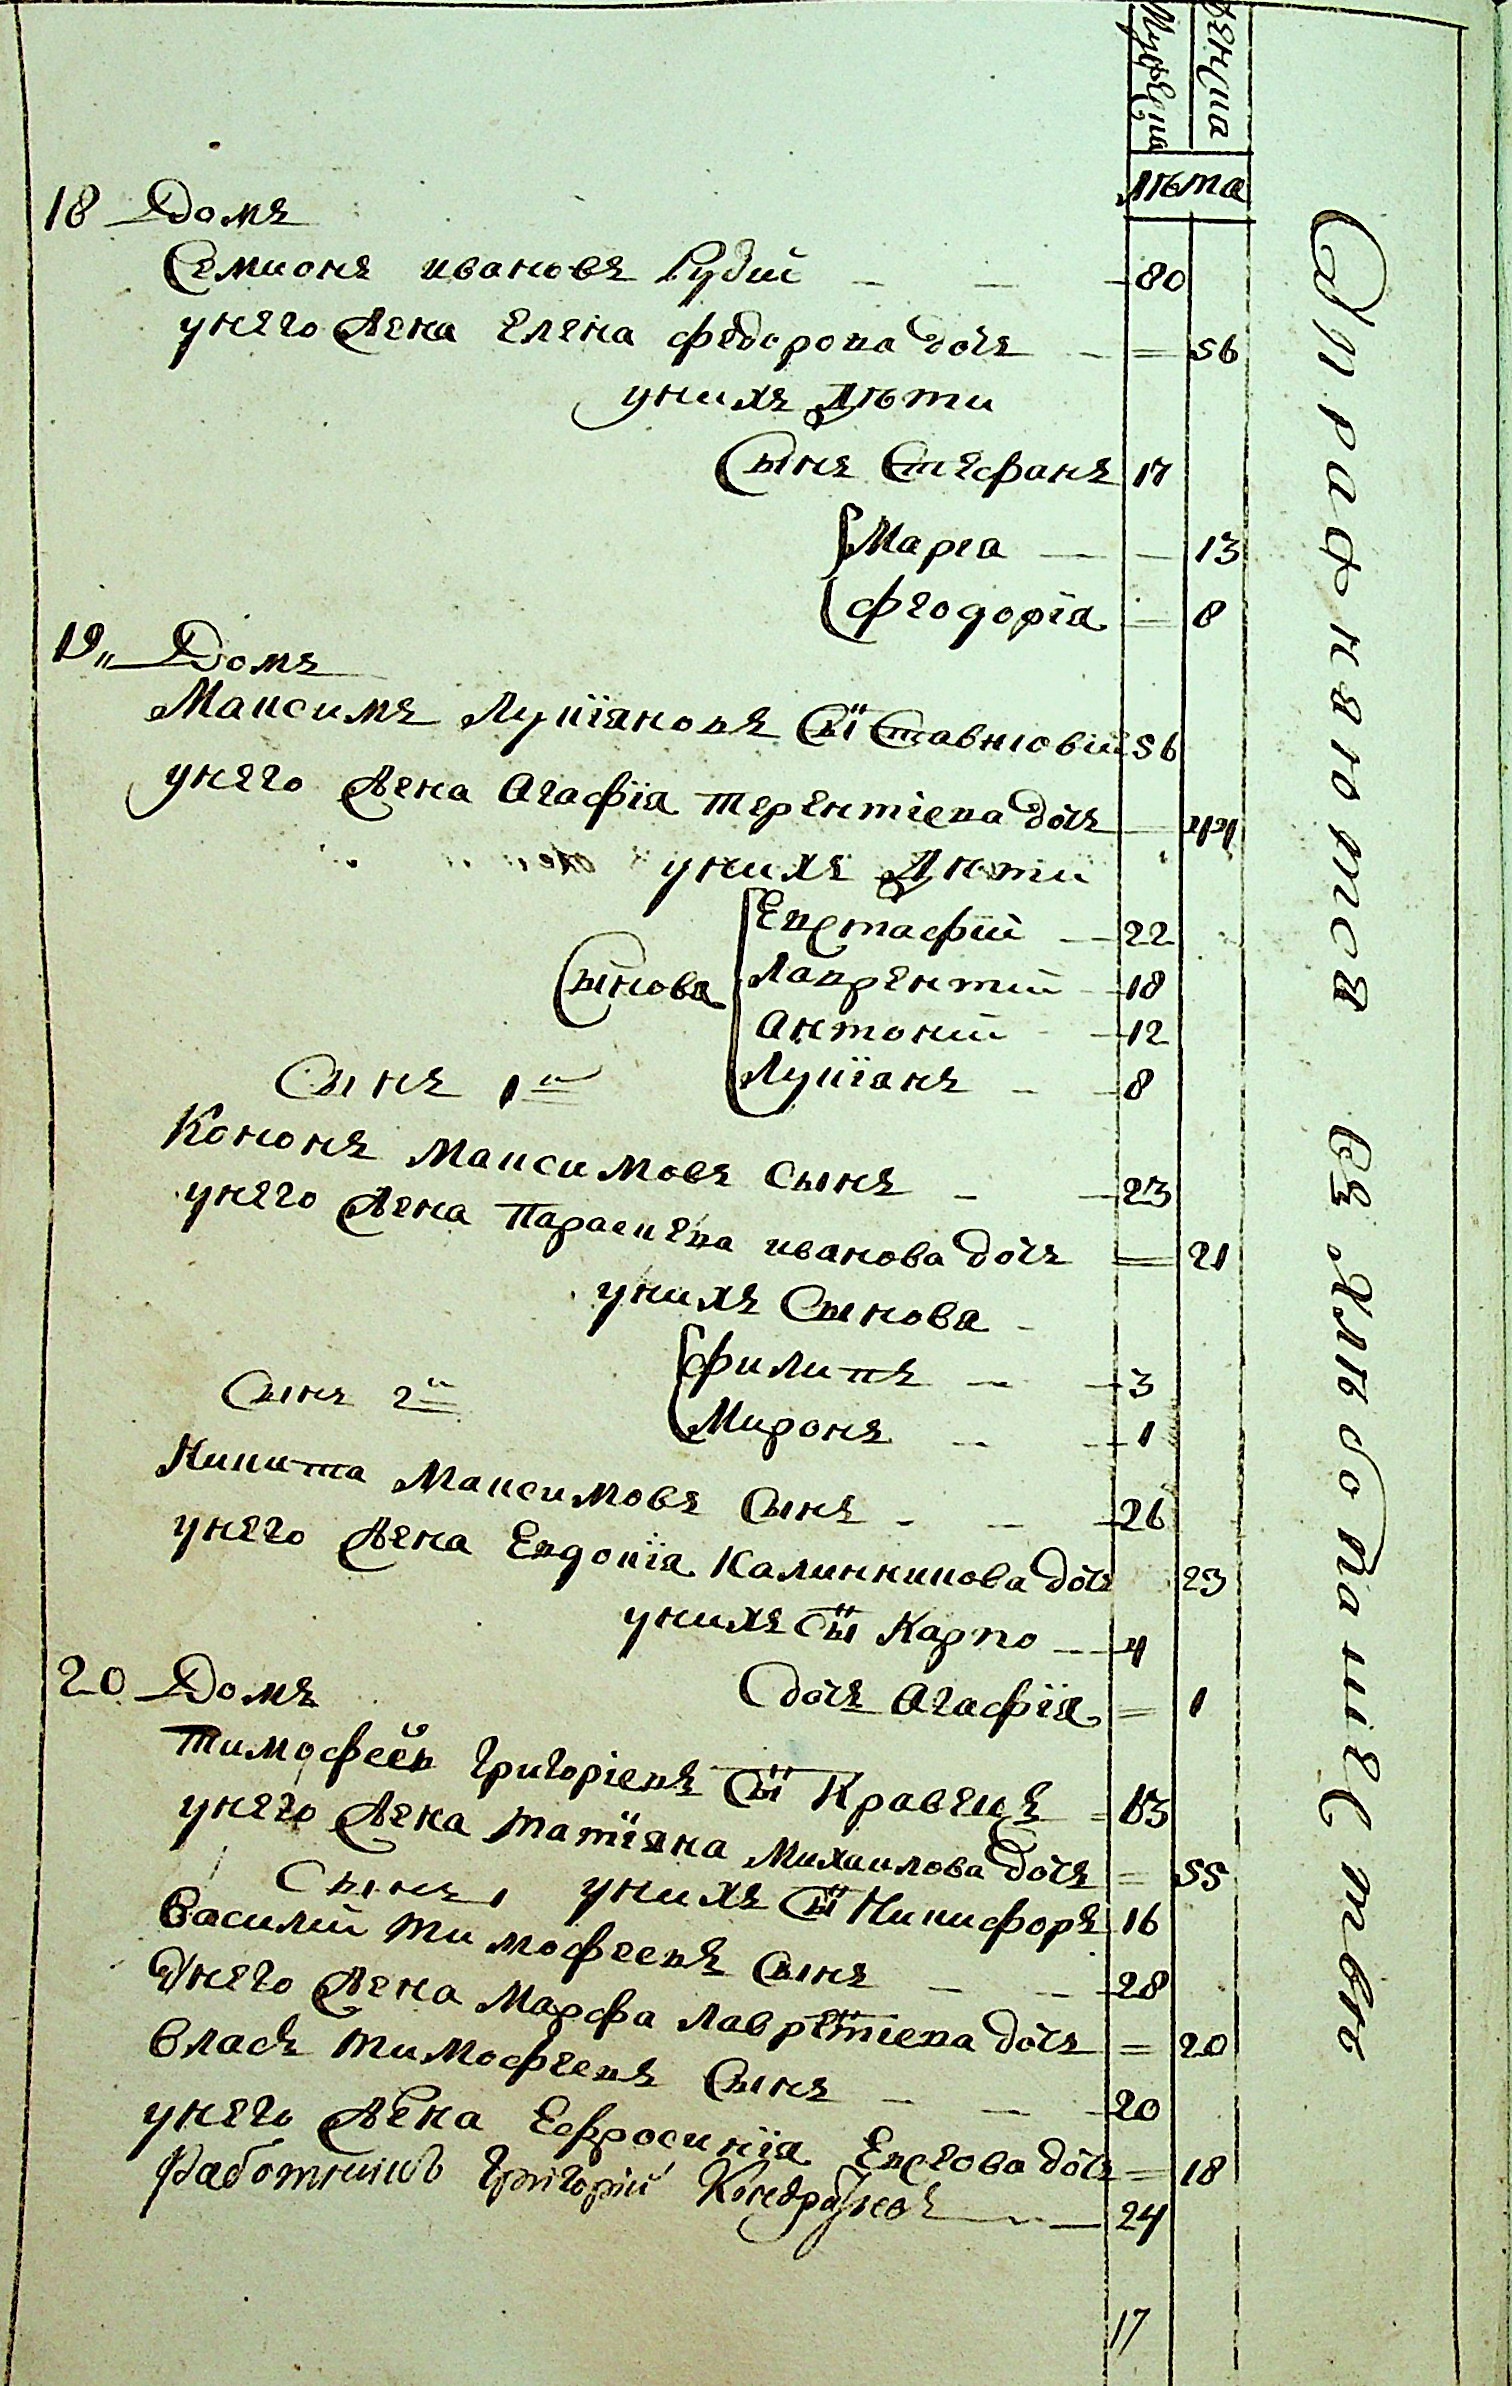 Мужеска
женска
лѣта
18 Домъ
Семионъ ивановъ Рудий 80
унего жена Елена федорова дочъ 56
унихъ дѣти
Сынъ Стефанъ 17
Марѳа 13
Феодория 8
19 Домъ
Максимъ Лукїяновъ сы Ставнювий 56
унего жена Агафїя терентіева дочъ 44
унихъ дѣти
Сынова
Евстафїй 22
Лаврентий 18
Антоний 12
Лукїянъ 8
Сынъ 1й
Кононъ Максимовъ сынъ 23
унего жена Параскева иванова дочъ 21
унихъ Сынова
филипъ 3
Миронъ 1
Сынъ 2й
Никита Максимовъ Сынъ 26
унего жена Евдокїя Калинникова дочъ 23
унихъ сы Карпо 4
дочъ Агафїя 1
20 Домъ
Тимофеей григоріевъ сы Кравецъ 63
унего жена татїяна Михаилова дочъ 55
унихъ сы Никифоръ 16
Сынъ 1
Василий тимофеевъ сынъ 28
Унего жена Марфа лаврѣтиева дочъ 20
Власъ тимофеевъ Сынъ 20
унего жена Ефросинїя Евсеова дочъ 18
Работникъ григорий Кондра 24
17
въ